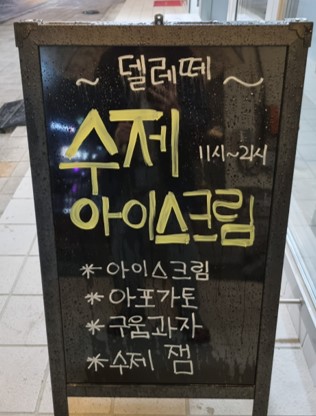 ~ 델레떼 ~
수제 11시~21시
아이스크림
* 아이스크림
* 아포가토
* 구움과자
* 수제 잼